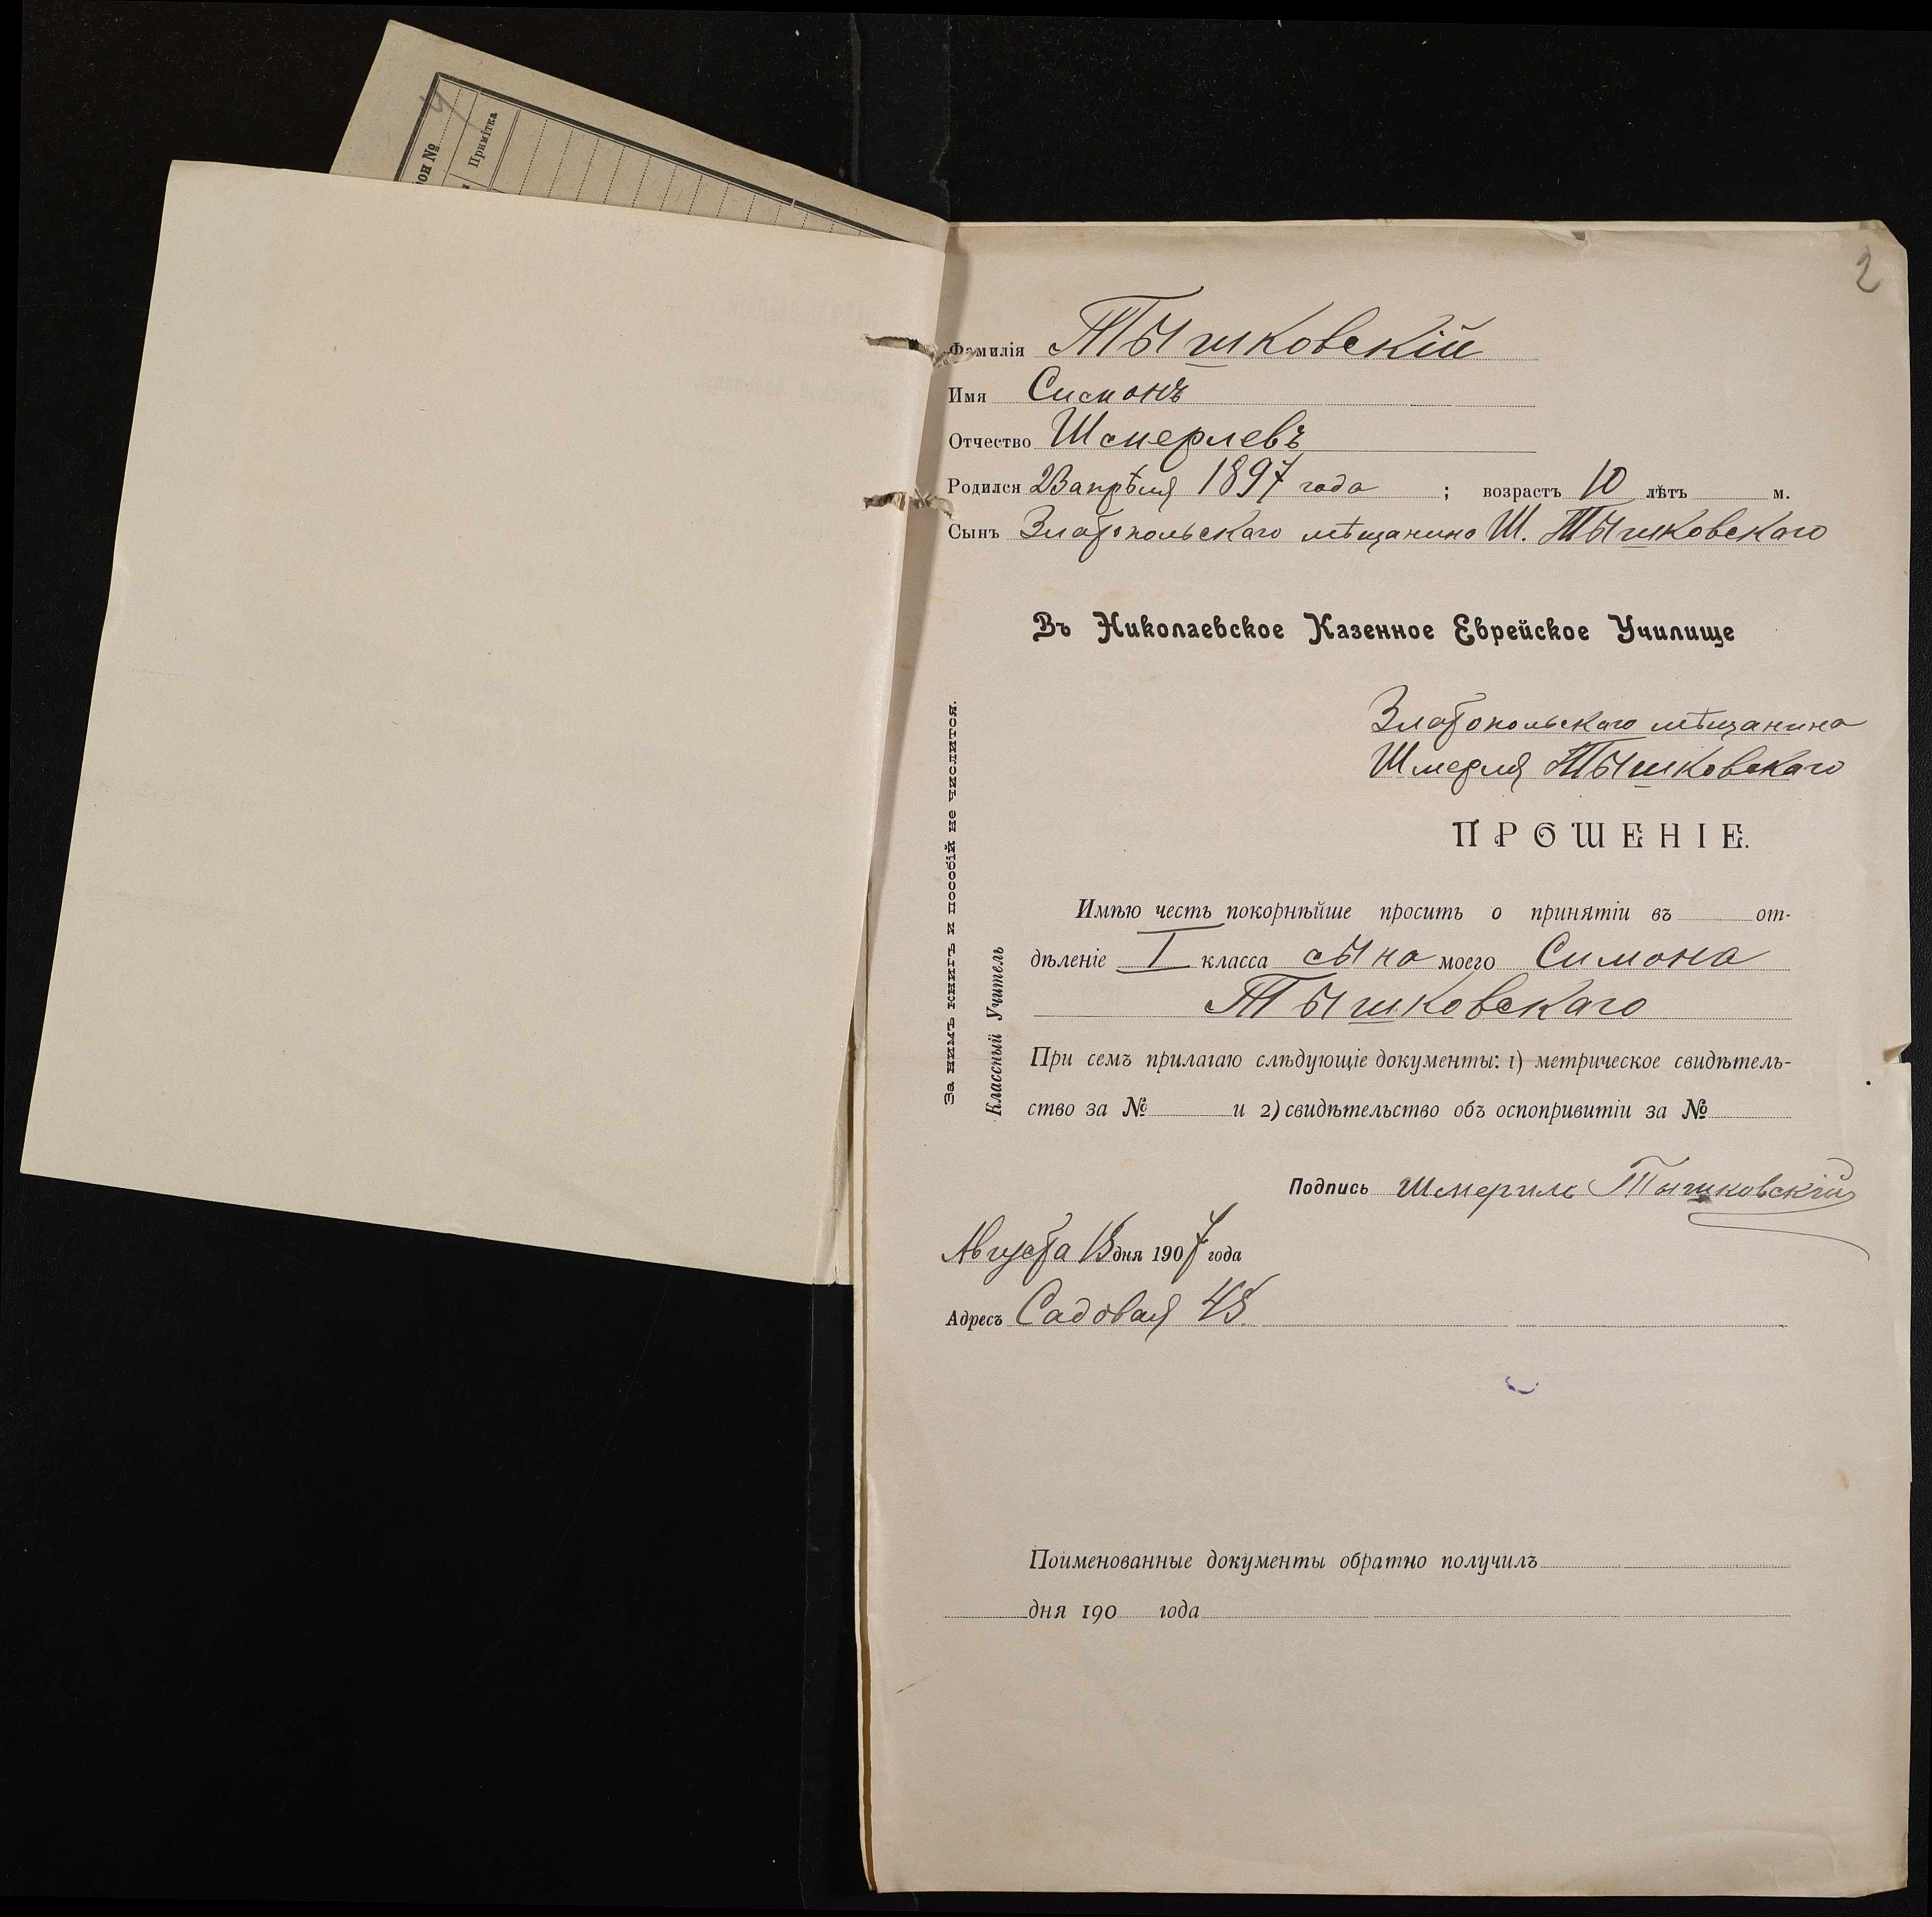 Примітка
2
Фамилія Тышковскій
Имя Симонъ
Отчество Шмерлевъ
Родился 23 апрѣля 1897 года ; возрастъ 10 лѣтъ м.
Сынъ Златопольскаго мѣщанина Ш. Тышковскаго
Въ Николаевское Казенное Еврейское Училище
Златопольскаго мѣщанина
Шмерля Тышковскаго
ПРОШЕНІЕ.
Имѣю честь покорнѣйше просить о принятіи въ от-
дѣленіе I класса сына моего Симона
Тышковскаго
При семъ прилагаю слѣдующіе документы: 1) метрическое свидѣтель-
ство за № и 2) свидѣтельство объ оспопривитіи за №
Подпись Шмериль Тышковскій
Августа 13 дня 1907 года
Адресъ Садовая 45.
Поименованные документы обратно получилъ
дня 190 года
За нимъ книгъ и пособій не числится.
Классный Учитель